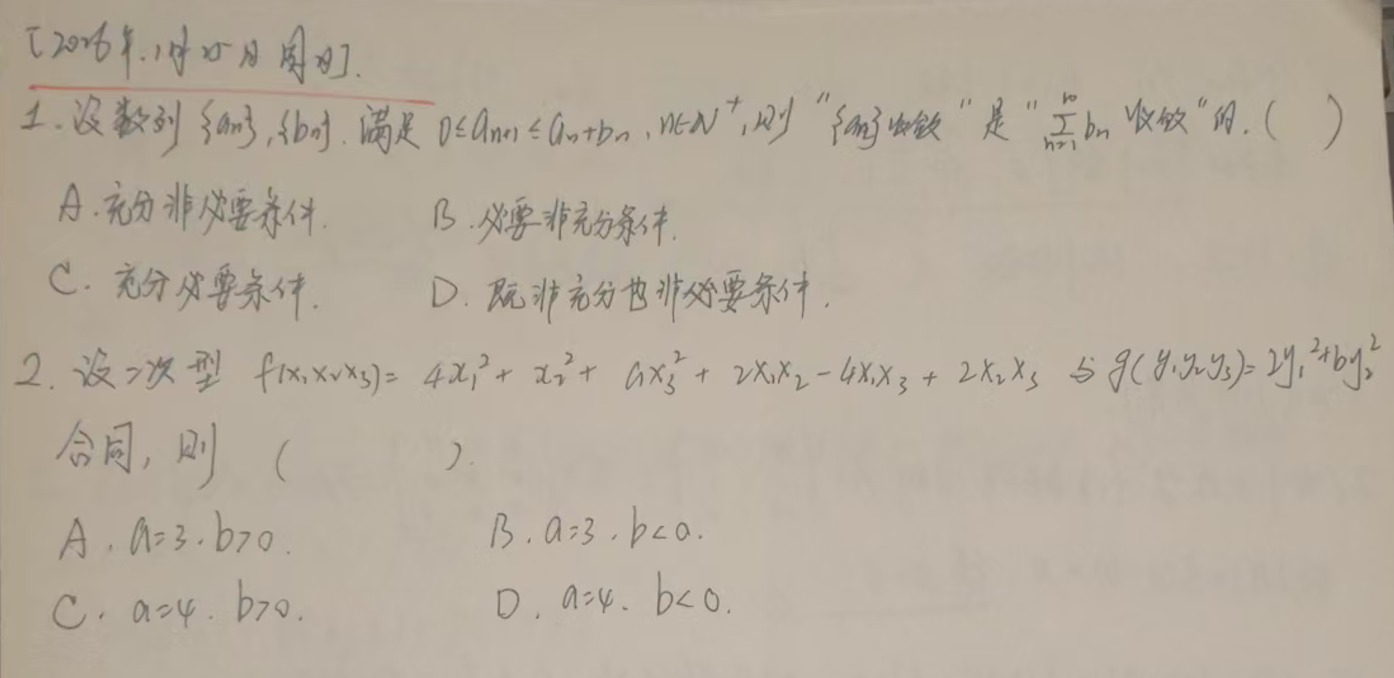 [2026年.1月25日周日].
1.设数列{an},{bn}.满足 0≤an+1≤an+bn,n∈N+,则"{an}收敛"是"∑n=1∞bn 收敛"的.( )
A.充分非必要条件. B.必要非充分条件.
C.充分必要条件. D.既非充分也非必要条件.
2.设二次型 f(x1x2x3)=4x1²+x2²+ax3²+2x1x2-4x1x3+2x2x3 与g(y1y2y3)=2y1²+by2²
合同,则 ( ).
A.a=3.b>0. B.a=3.b<0.
C.a=4.b>0. D.a=4.b<0.